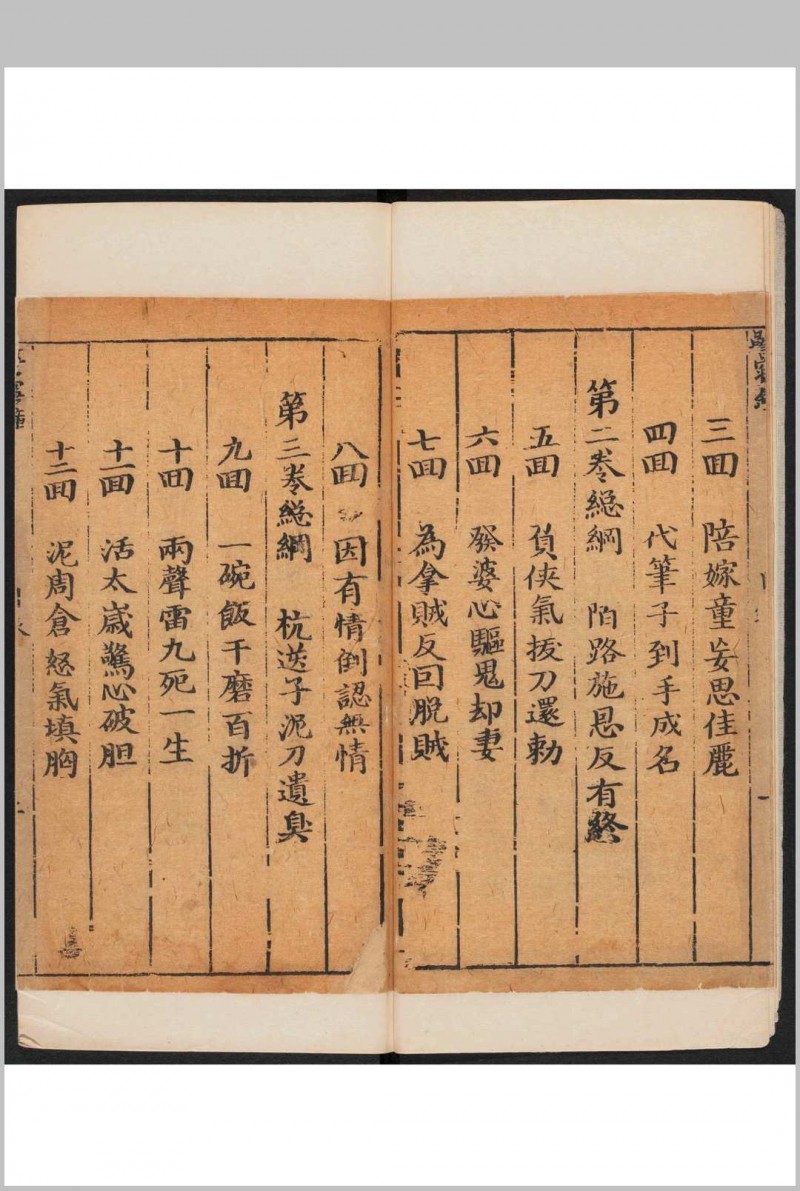 三囬 陪嫁童妄思佳麗
四囬 代筆子到手成名
第二卷緫綱 陌路施恩反有終
五囬 負俠氣拔刀還勅
六囬 發婆心驅鬼却妻
七囬 為拿賊反回脱賊
八囬 因有情倒認無情
第三卷緫綱 杭送子泥刀遺臭
九囬 一碗飯千磨百折
十囬 兩聲雷九死一生
十一囬 活太歲驚心破胆
十二囬 泥周倉怒氣填胸